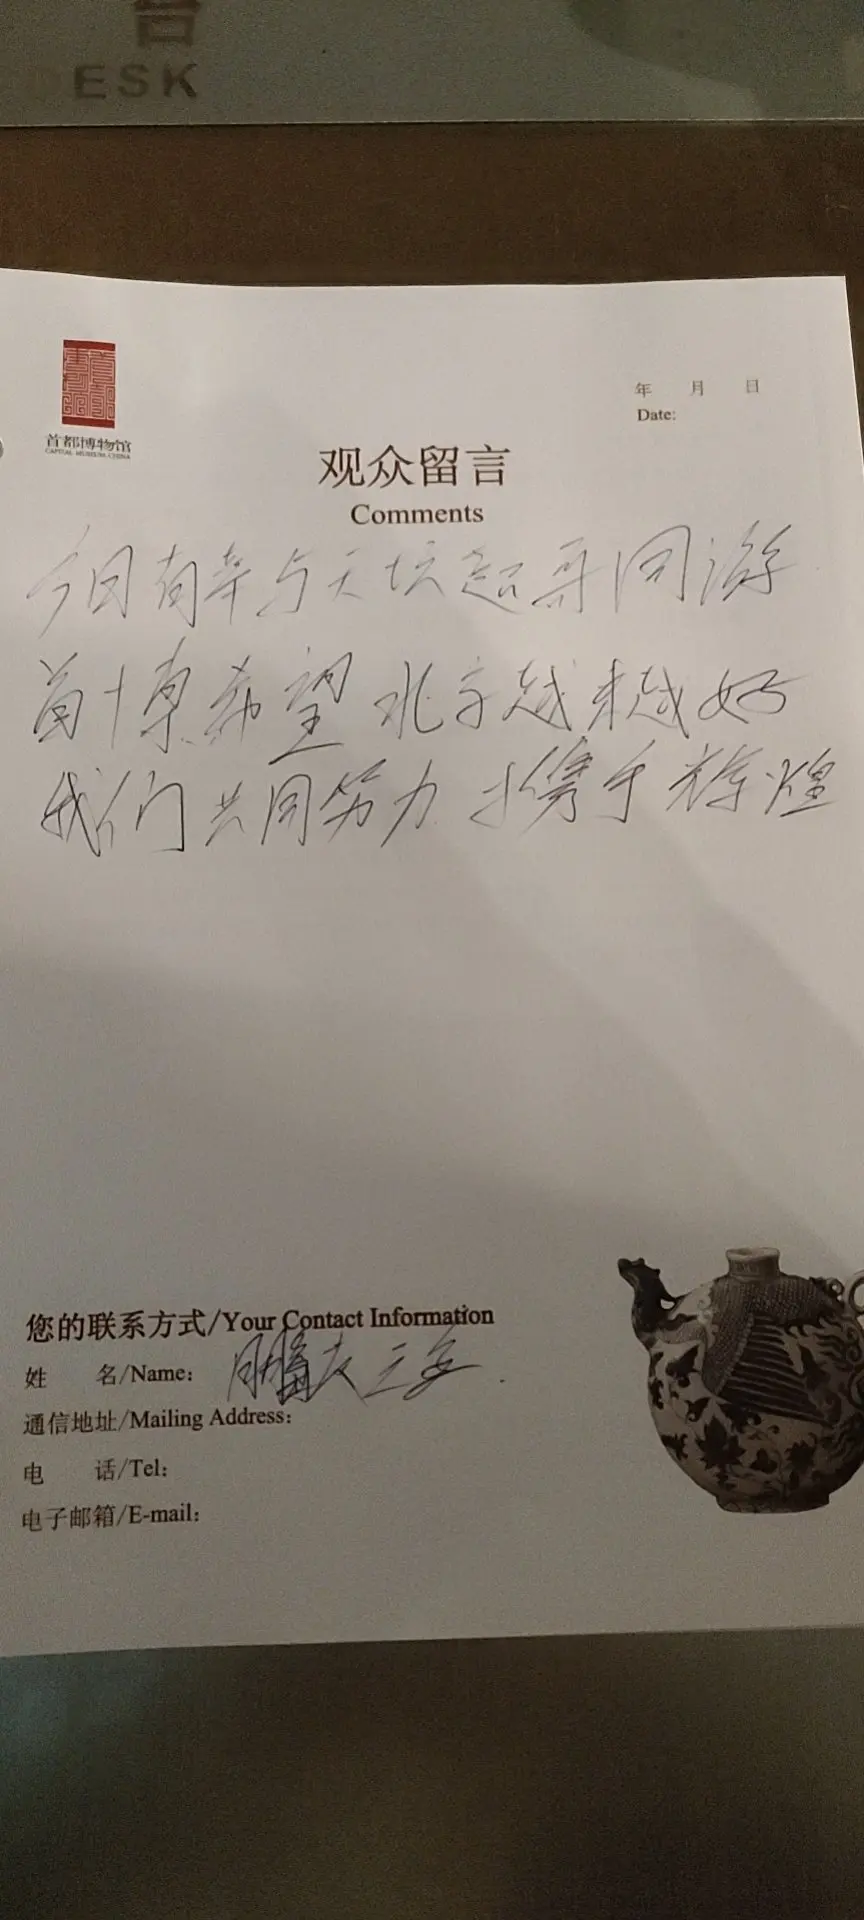 台
DESK
首都博物馆
CAPITAL MUSEUM, CHINA
年 月 日
Date:
观众留言
Comments
今日有幸与天坛超哥同游
首博希望北京越来越好
我们共同努力携手辉煌
您的联系方式/Your Contact Information
姓 名/Name:
通信地址/Mailing Address:
电 话/Tel:
电子邮箱/E-mail: